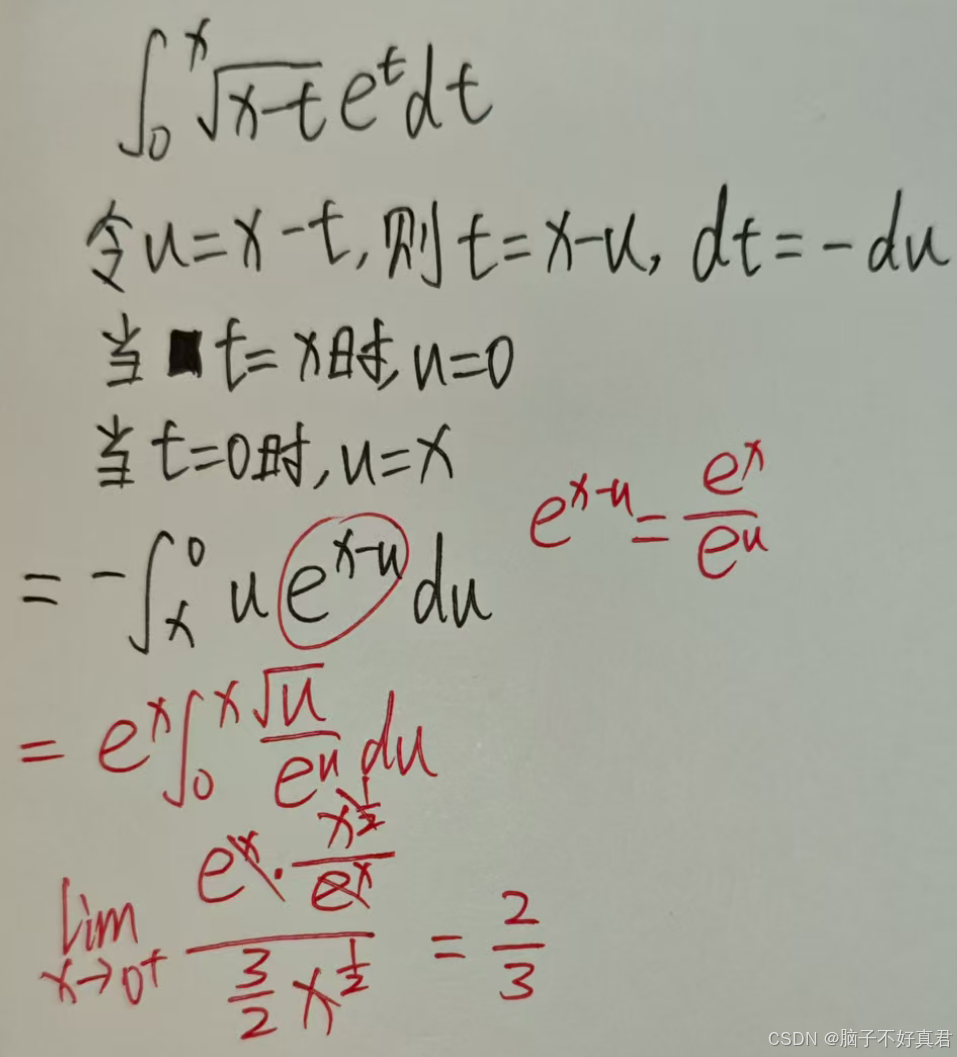 ∫₀ˣ √(x-t) eᵗ dt
令u=x-t,则t=x-u, dt=-du
当t=x时,u=0
当t=0时,u=x
e^(x-u) = e^x/e^u
= -∫ₓ⁰ u e^(x-u) du
= e^x ∫₀ˣ √u/e^u du
lim x→0⁺ (e^x · x^(1/2)/e^x)/((3/2)x^(1/2)) = 2/3
CSDN @脑子不好真君